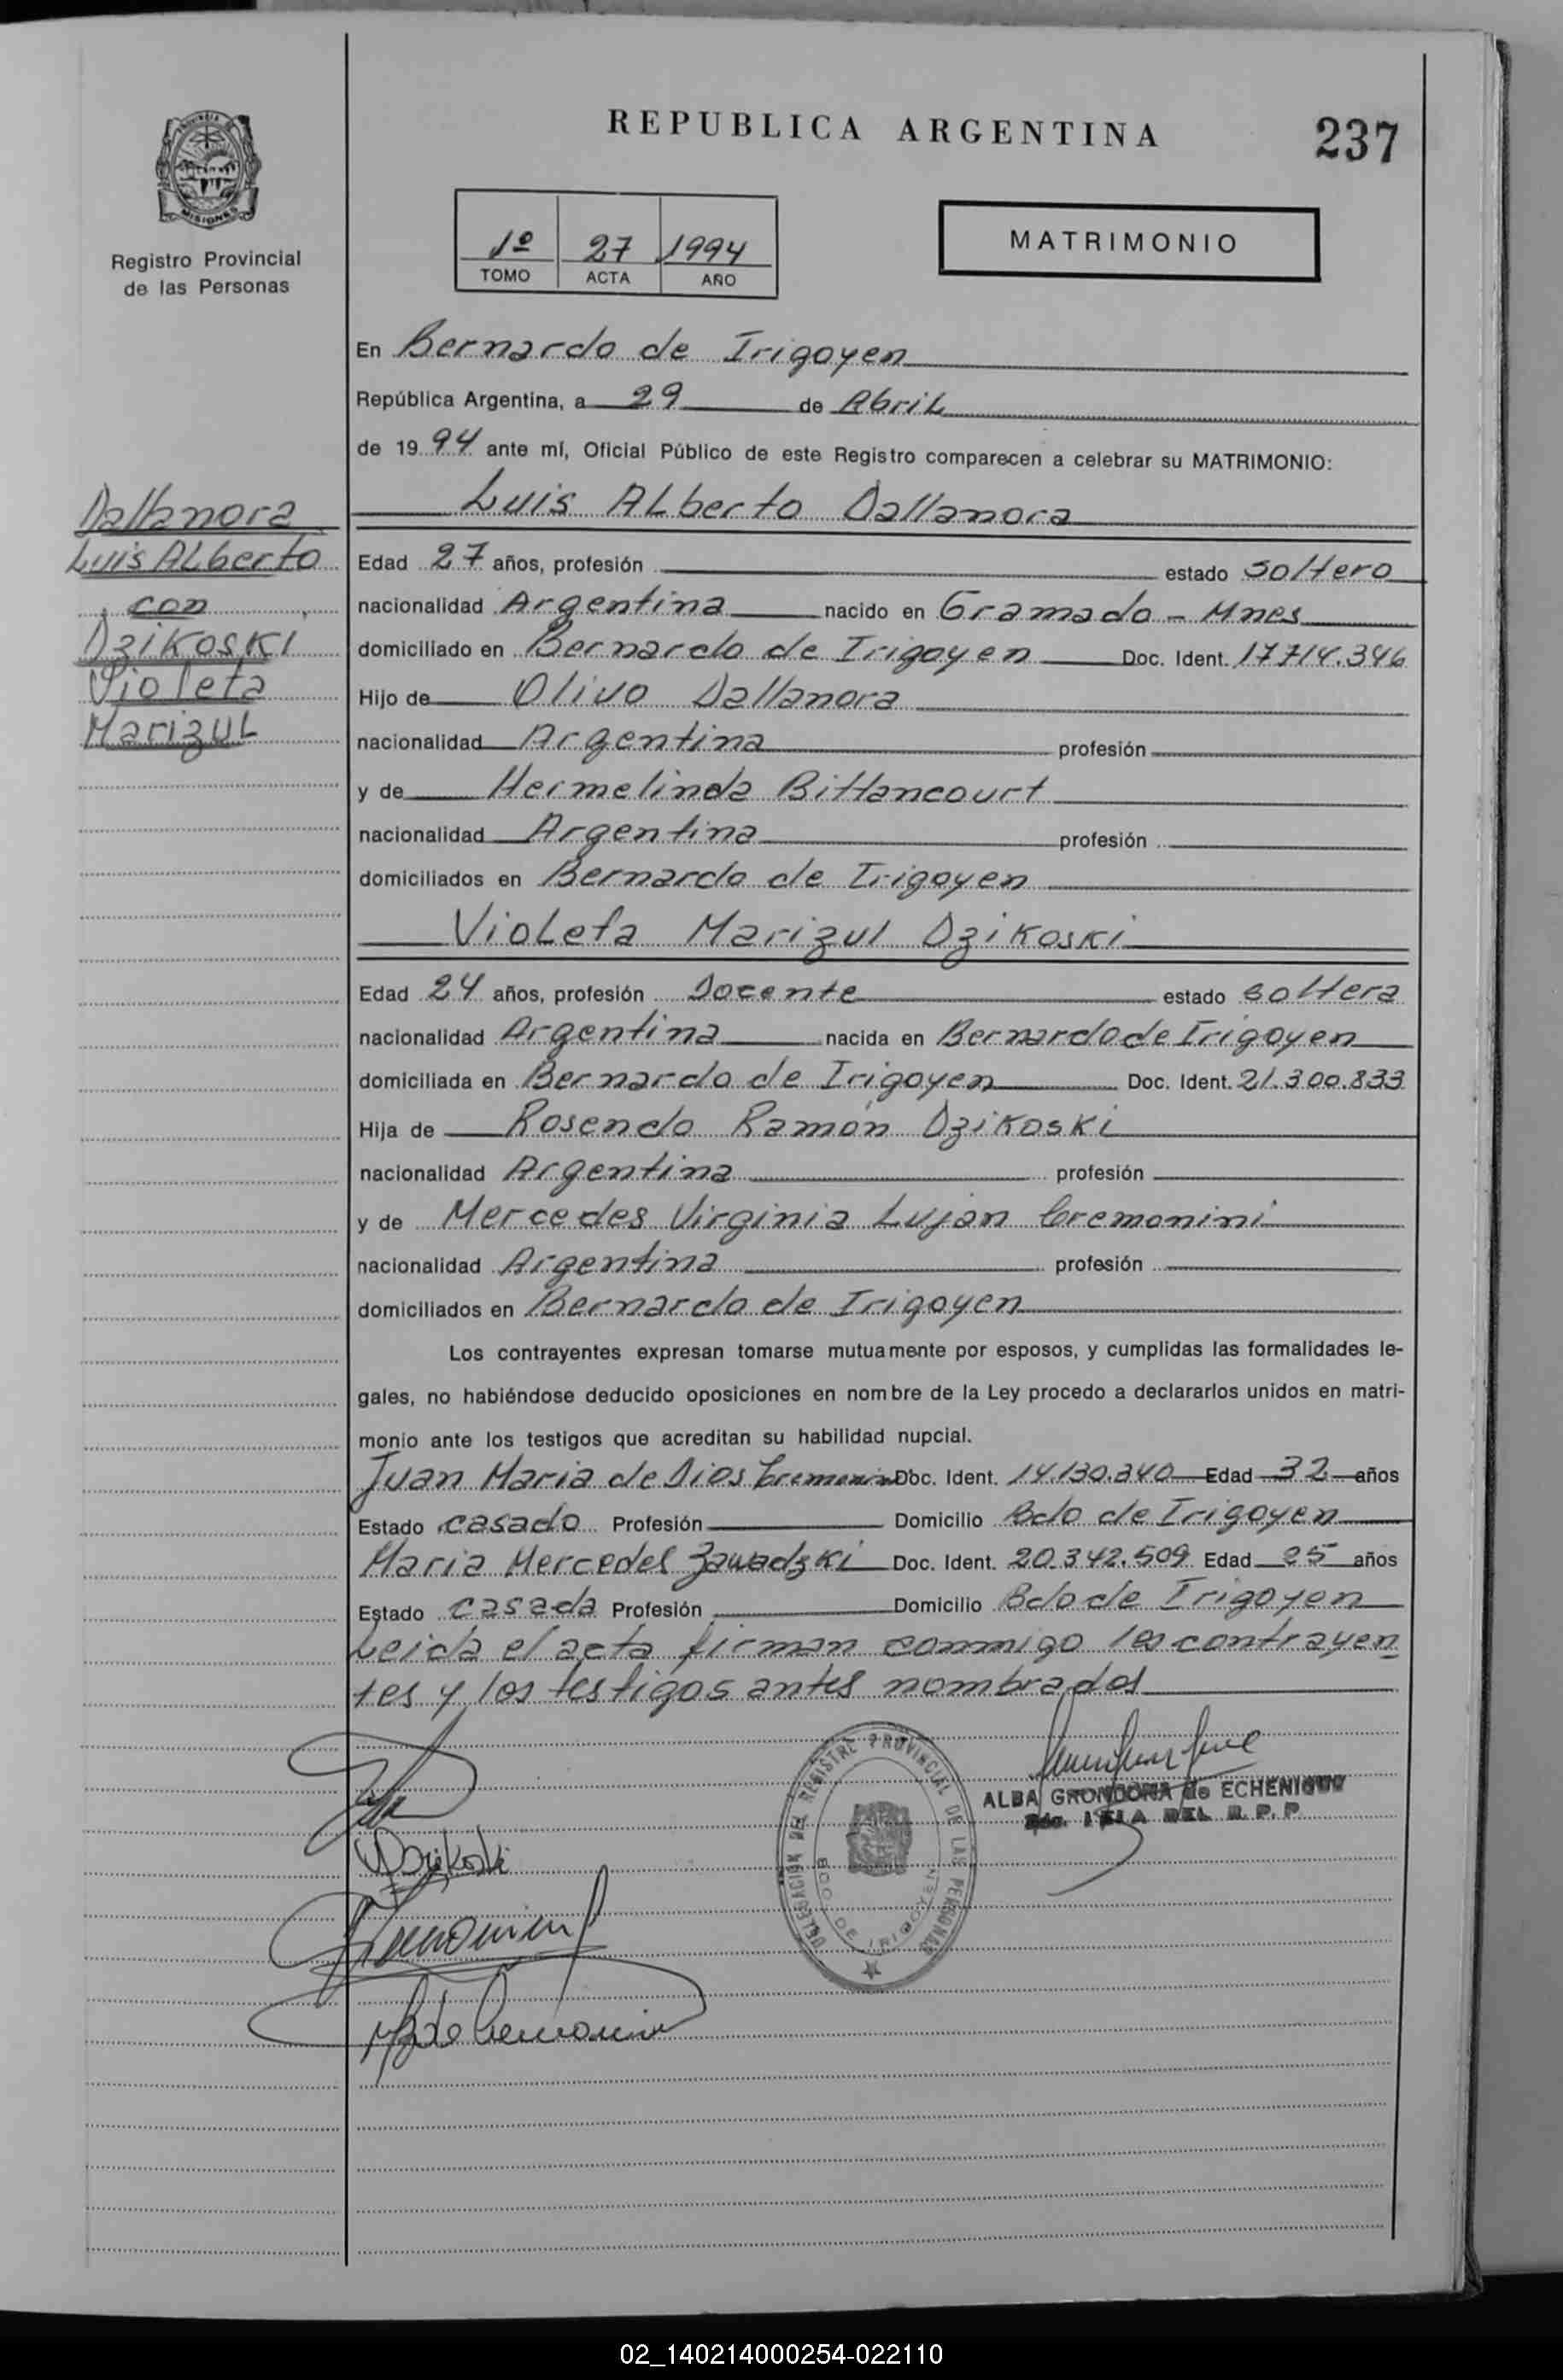 REPUBLICA ARGENTINA
237
PROVINCIA
MISIONES
Registro Provincial
de las Personas
1º 27 1994
TOMO ACTA AÑO
MATRIMONIO
En Bernardo de Irigoyen
República Argentina, a 29 de Abril
de 1994 ante mí, Oficial Público de este Registro comparecen a celebrar su MATRIMONIO:
Dallanora
Luis Alberto
con
Dzikoski
Violeta
Marizul
Luis Alberto Dallanora
Edad 27 años, profesión estado soltero
nacionalidad Argentina nacido en Gramado - Mnes
domiciliado en Bernardo de Irigoyen Doc. Ident. 17714.346
Hijo de Olivo Dallanora
nacionalidad Argentina profesión
y de Hermelinda Bittancourt
nacionalidad Argentina profesión
domiciliados en Bernardo de Irigoyen
Violeta Marizul Dzikoski
Edad 24 años, profesión Docente estado soltera
nacionalidad Argentina nacida en Bernardo de Irigoyen
domiciliada en Bernardo de Irigoyen Doc. Ident. 21.300.833
Hija de Rosendo Ramón Dzikoski
nacionalidad Argentina profesión
y de Mercedes Virginia Lujan Cremonini
nacionalidad Argentina profesión
domiciliados en Bernardo de Irigoyen
Los contrayentes expresan tomarse mutuamente por esposos, y cumplidas las formalidades le-
gales, no habiéndose deducido oposiciones en nombre de la Ley procedo a declararlos unidos en matri-
monio ante los testigos que acreditan su habilidad nupcial.
Juan Maria de Dios Cremonini Doc. Ident. 14.130.340 Edad 32 años
Estado casado Profesión Domicilio Bdo de Irigoyen
Maria Mercedes Zawadzki Doc. Ident. 20.342.509 Edad 25 años
Estado casada Profesión Domicilio Bdo de Irigoyen
Leida el acta firman conmigo los contrayen
tes y los testigos antes nombrados
ALBA GRONDONA de ECHENIQUE
DEL R. P. P.
DELEGACION DEL REGISTRE PROVINCIAL DE LAS PERSONAS
BDO. DE IRIGOYEN
VDzikoski
Cremonini
de Cremonini
02_140214000254-022110